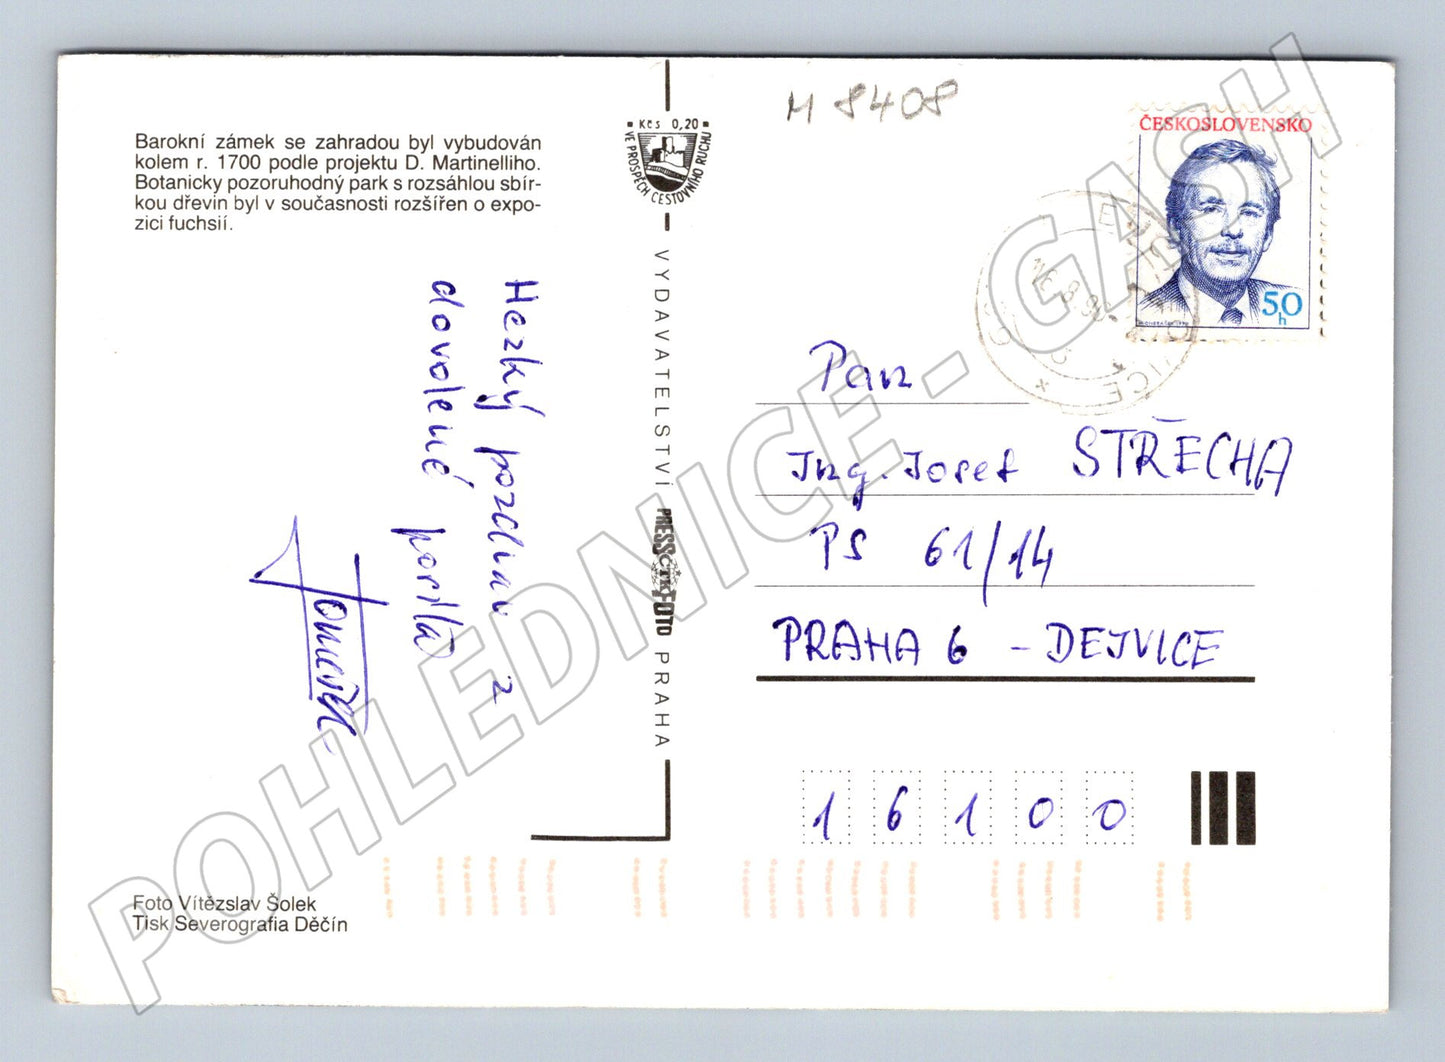 Barokní zámek se zahradou byl vybudován
kolem r. 1700 podle projektu D. Martinelliho.
Botanicky pozoruhodný park s rozsáhlou sbír-
kou dřevin byl v současnosti rozšířen o expo-
zici fuchsií.
Hezký pozdrav z
dovolené posílá
Foto Vítězslav Šolek
Tisk Severografia Děčín
Kčs 0,20
VE PROSPĚCH CESTOVNÍHO RUCHU
VYDAVATELSTVÍ PRESSFOTO PRAHA
ČTK
M 8408
ČESKOSLOVENSKO
50
h
Pan
Ing. Josef STŘECHA
PS 61/14
PRAHA 6 - DEJVICE
16100
POHLEDNICE - GASH